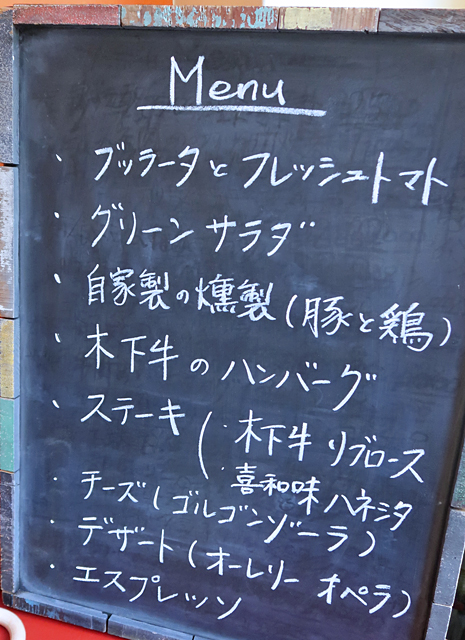 Menu
・ブッラータとフレッシュトマト
・グリーンサラダ
・自家製の燻製(豚と鶏)
・木下牛のハンバーグ
・ステーキ(・木下牛リブロース
・喜和味ハネシタ
・チーズ(ゴルゴンゾーラ)
・デザート(オーレリー オペラ)
・エスプレッソ